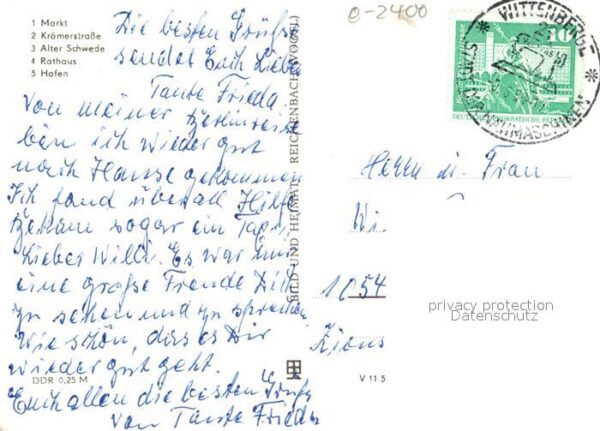 1 Markt
2 Krämerstraße
3 Alter Schwede
4 Rathaus
5 Hafen
Die besten Grüße
sendet Euch Lieben
Tante Frieda
Von meiner Heimreise
bin ich wieder gut
nach Hause gekommen
Ich fand überall Hilfe
bekam sogar ein Taxi.
Lieber Willi. Es war mir
eine große Freude Dich
zu sehen und zu sprechen
Wie schön, dass es Dir
wieder gut geht.
Euch allen die besten Grüße
von Tante Frieda
DDR 0,25 M
BILD UND HEIMAT REICHENBACH (VOGTL)
V 11 5
e-2400
WITTENBERGE
NÄHMASCHINEN
10
DEUTSCHE DEMOKRATISCHE REPUBLIK
Herrn u. Frau
Wi.
1054
privacy protection
Datenschutz